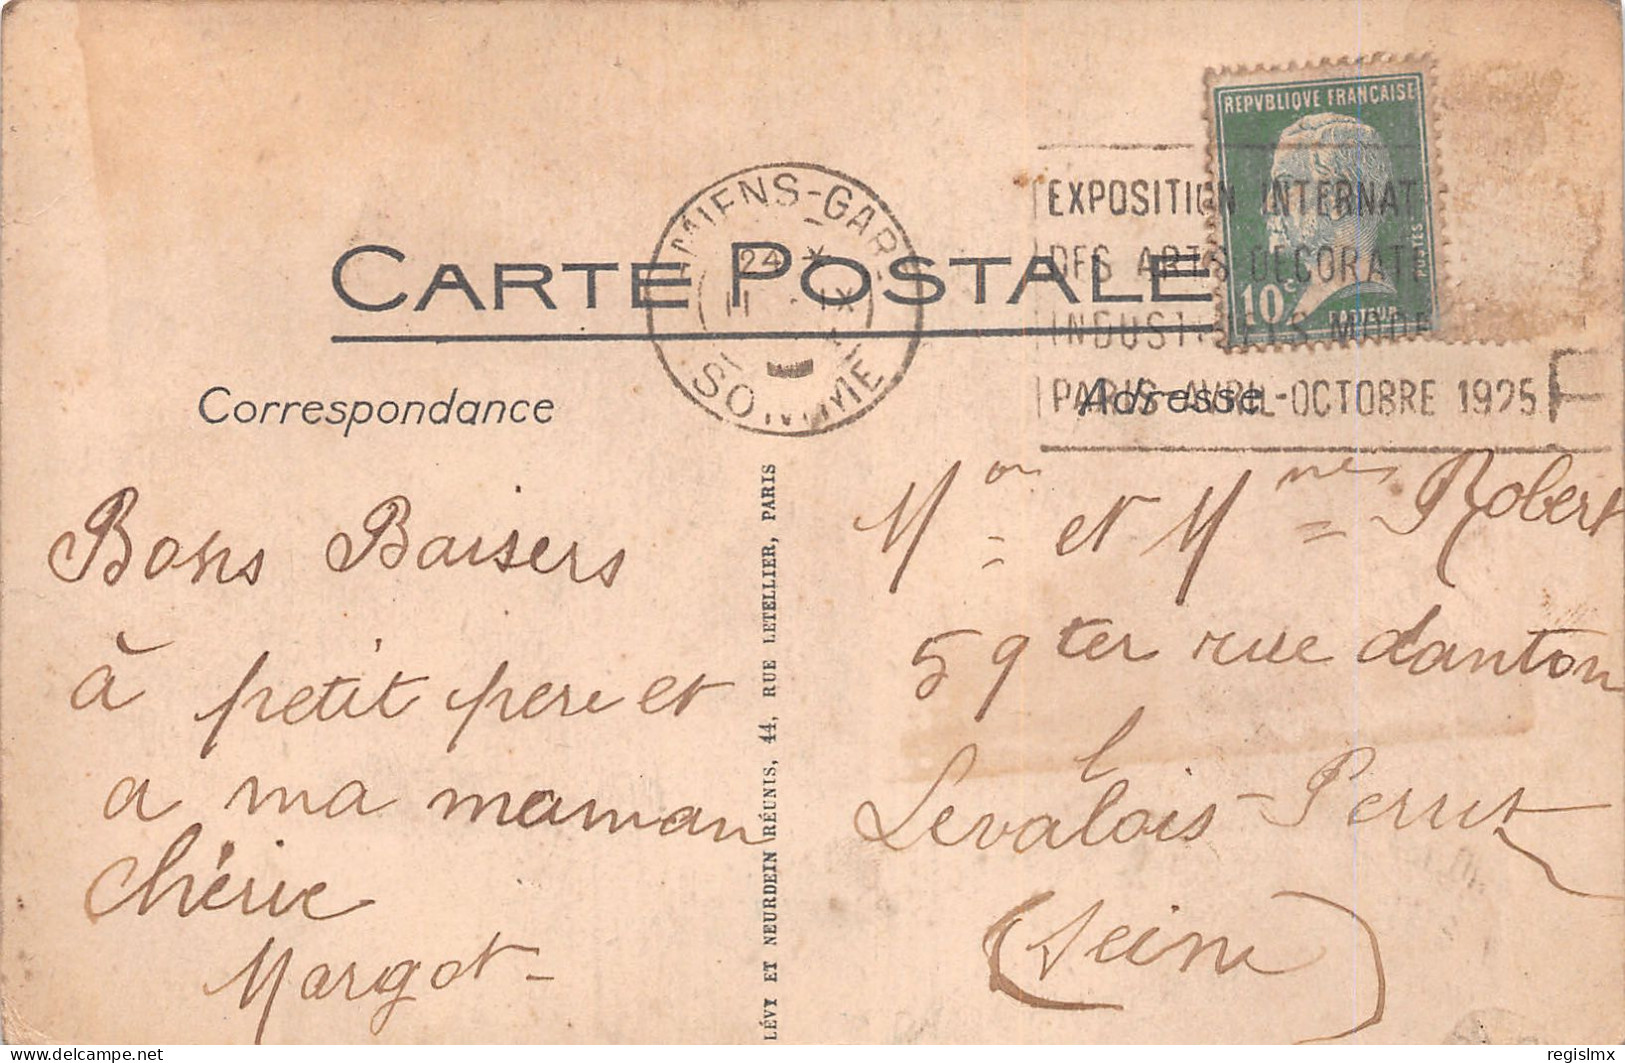 REPVBLIQVE FRANÇAISE
10c
POSTES
PASTEUR
AMIENS-GARE
24 X
11 IX
SOMME
EXPOSITION INTERNAT
DES ARTS DECORATI
INDUSTRIELS MODE
PARIS-AVRIL-OCTOBRE 1925
CARTE POSTALE
Correspondance
Adresse
Bons Baisers
à petit pere et
a ma maman
Chérie
Margot
LÉVY ET NEURDEIN RÉUNIS, 44, RUE LETELLIER, PARIS
Mon et Mmes Robert
59 ter rue danton
Levalois-Perret
l
(Seine)
delcampe.net
regislmx